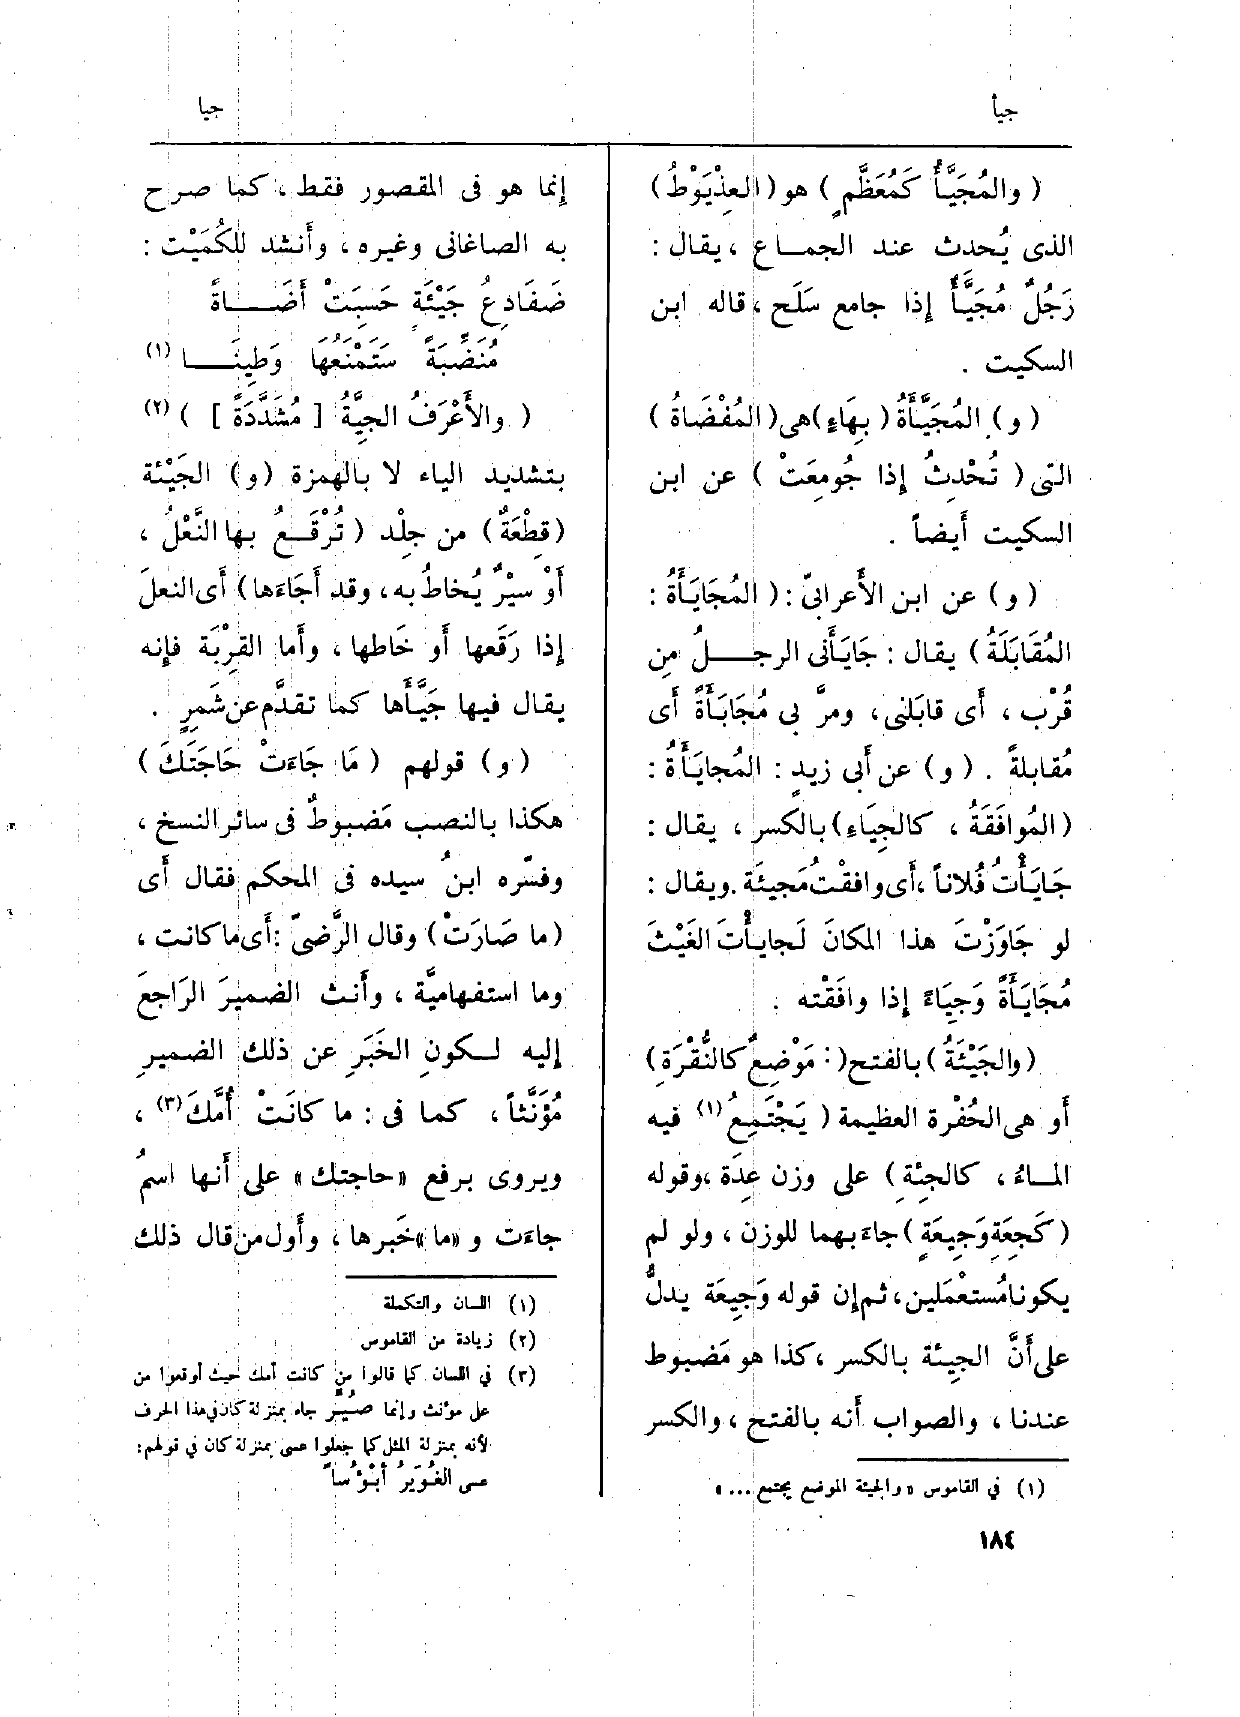 جيأ
جيا
( والمُجَيَّأُ كَمُعَظَّمٍ ) هو ( العِذْيَوْطُ )
الذى يُحدث عند الجمـاع ، يقال :
رَجُلٌ مُجَيَّأٌ إذا جامع سَلَح ، قاله ابن
السكيت .
( و ) المُجَيَّأَةُ ( بِهَاءٍ ) هى ( المُفْضَاةُ )
التى ( تُحْدِثُ إذا جُومِعَتْ ) عن ابن
السكيت أيضاً .
( و ) عن ابن الأَعرابىّ : ( المُجَايَأَةُ :
المُقَابَلَةُ ) يقال : جَايَأَنى الرجـلُ مِن
قُرْب ، أَى قابَلنى ، ومرَّ بى مُجَايَأَةً أَى
مُقابلةً . ( و ) عن أَبى زيدٍ : المُجايَأَةُ :
( المُوافَقَةُ ، كالجِيَاءِ ) بالكسر ، يقال :
جَايَأْتُ فُلاناً ، أَى وافقْتُ مَجيئَه . ويقال :
لو جَاوَزْتَ هذا المكانَ لَجايأْتَ الغَيْثَ
مُجَايَأَةً وَجِيَاءً إذا وافَقْته .
( والجَيْئَةُ ) بالفتح ( : مَوْضِعٌ كالنُّقْرَةِ )
أَو هى الحُفْرة العظيمة ( يَجْتَمِعُ (١) فيه
المـاءُ ، كالجِئَةِ ) على وزن عِدَة ، وقوله
( كَجِعَةٍ وَجِيعَةٍ ) جاءَ بهما للوزن ، ولو لم
يكونا مُستعْمَلين ، ثم إن قوله وَجِيعَة يدلُّ
على أَنَّ الجيئة بالكسر ، كذا هو مَضبوط
عندنا ، والصواب أنه بالفتح ، والكسر
(١) في القاموس « والجيئة الموضع يجتمع ... »
إنما هو فى المقصور فقط ، كما صرح
به الصاغانى وغيره ، وأَنشد للكُمَيْت :
ضَفَادِعُ جَيْئَةٍ حَسِبَتْ أَضَـاةً
مُنَضِّبَةً سَتَمْنَعُهَا وَطِينَـا (١)
( والأَعْرَفُ الجِيَّةُ [ مُشَدَّدَةً ] ) (٢)
بتشديد الياء لا بالهمزة ( و ) الجَيْئة
( قِطْعَةٌ ) من جِلْد ( تُرْقَـعُ بها النَّعْلُ ،
أَوْ سيْرٌ يُخاطُ به ، وقد أَجَاءَها ) أَى النعلَ
إذا رَقَعها أَو خَاطها ، وأَما القِرْبَة فإِنه
يقال فيها جَيَّأَها كما تقدَّم عن شَمِرٍ .
( و ) قولهم ( مَا جَاءَتْ حَاجَتَكَ )
هكذا بالنصب مَضبوطٌ فى سائر النسخ ،
وفسّره ابنُ سيده فى المحكم فقال أَى
( ما صَارَتْ ) وقال الرَّضىّ : أَى ما كانت ،
وما استفهاميَّة ، وأَنث الضميرَ الرَاجعَ
إليه لـكونِ الخَبَرِ عن ذلك الضميرِ
مُؤنَّثاً ، كما فى : ما كانَتْ أُمَّكَ (٣) ،
ويروى برفع «حاجتك» على أَنها اسمُ
جاءَت و «ما» خَبرها ، وأَول من قال ذلك
(١) اللسان والتكملة
(٢) زيادة من القاموس
(٣) في اللسان كما قالوا من كانت أمك حيث أوقعوا من
على مؤنث وإنما صُيِّر جاء بمنزلة كان في هذا الحرف
لأنه بمنزلة المثل كما جعلوا عسى بمنزلة كان في قولهم :
عسى الغُوَيرُ أبْؤُساً
١٨٤